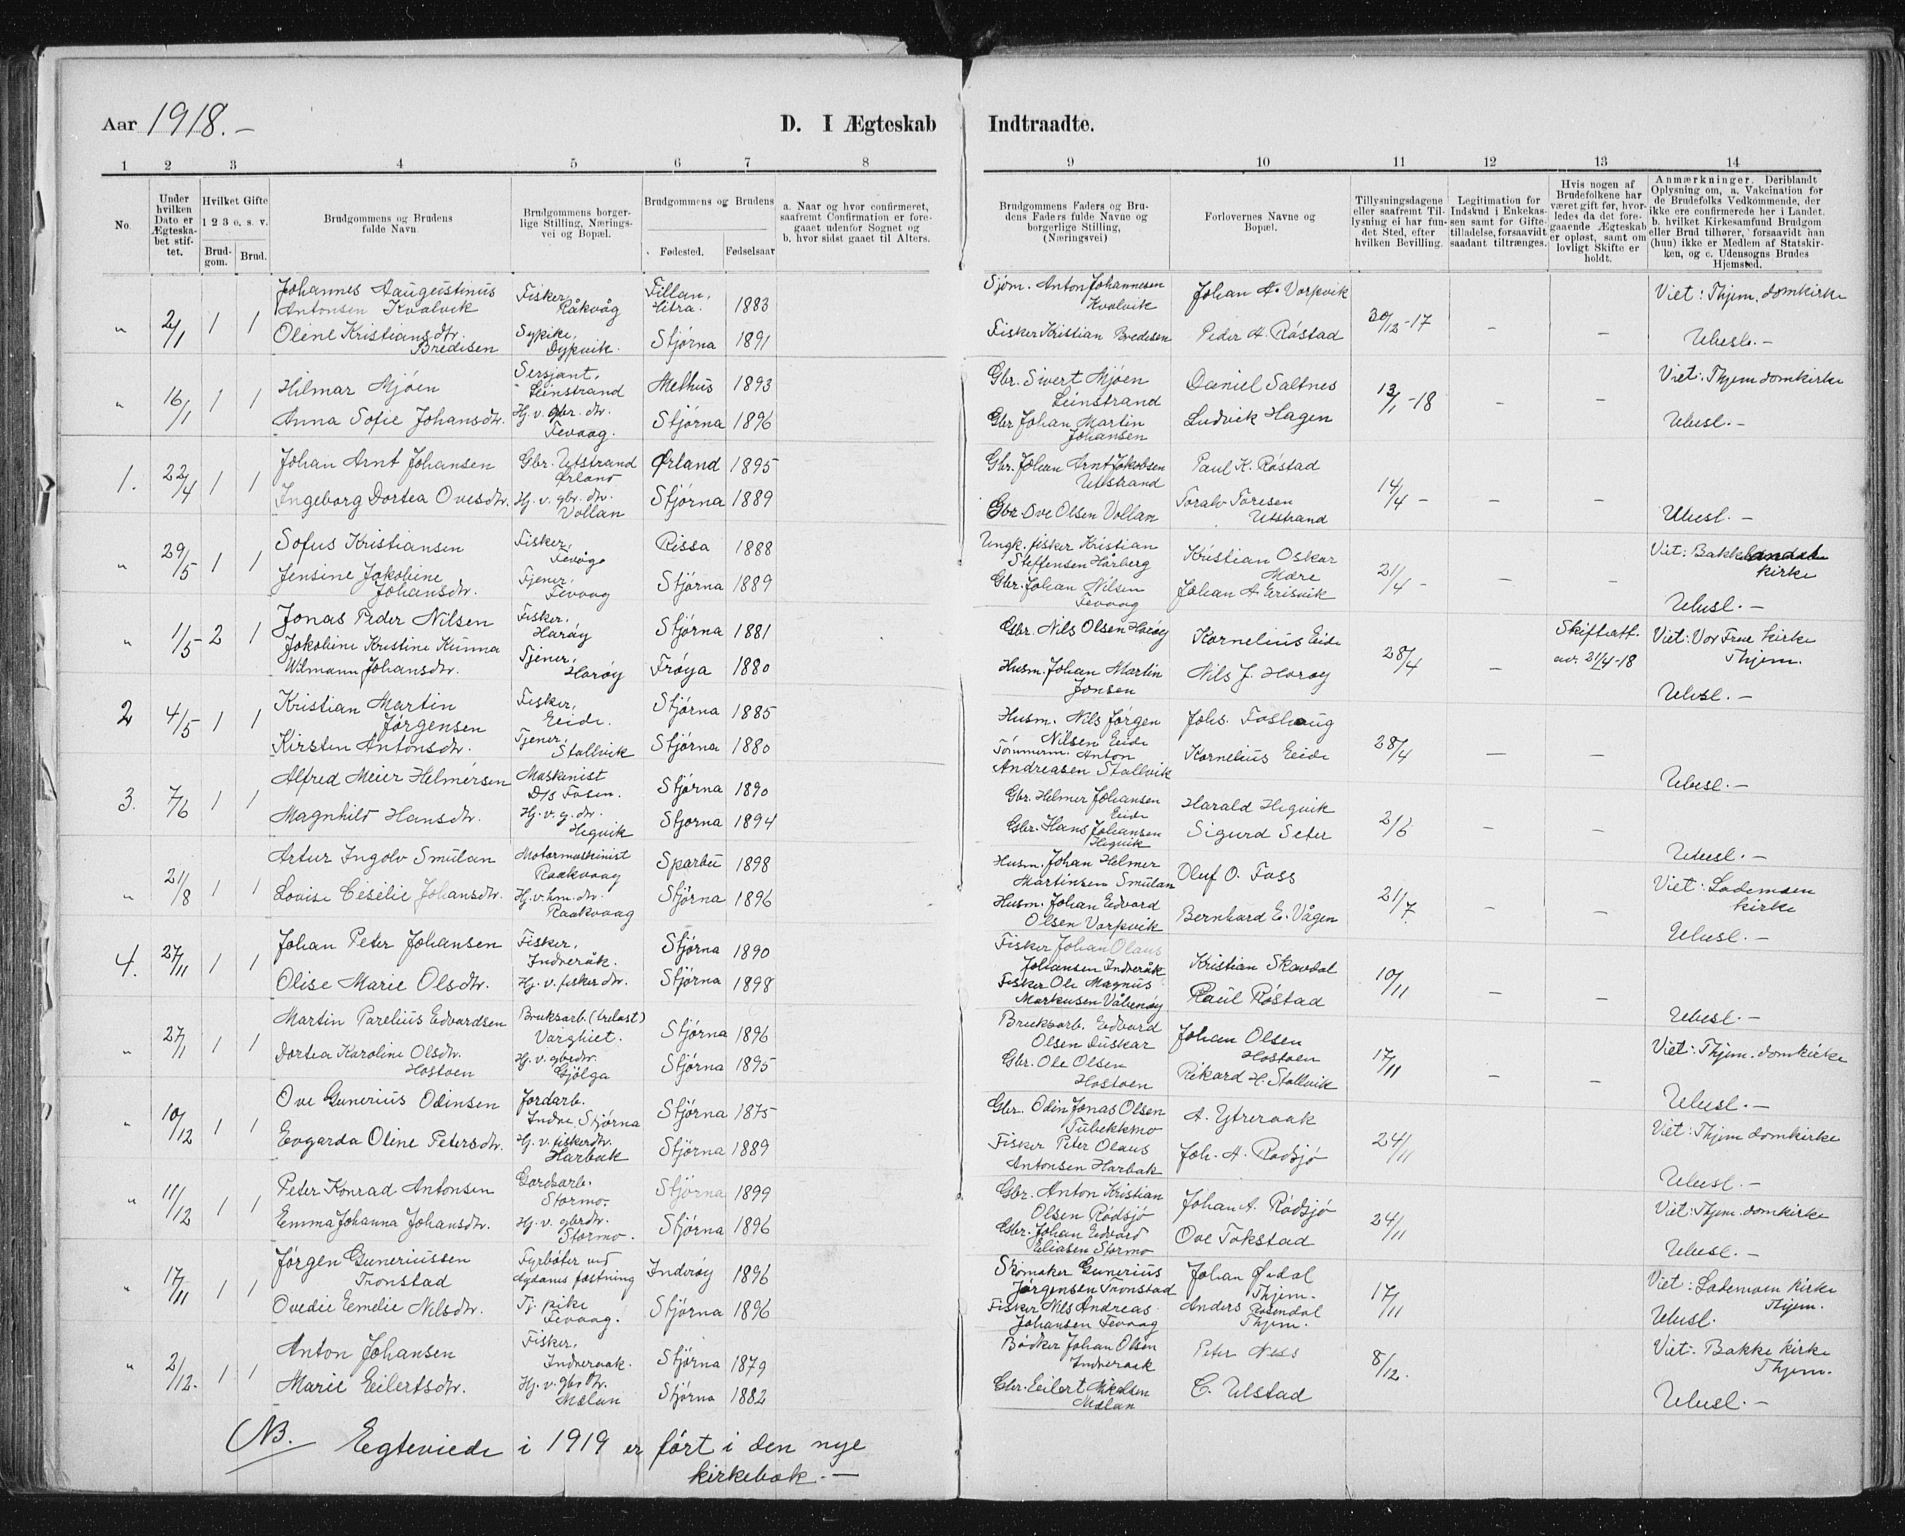 Aar 1918.–
D. I Ægteskab Indtraadte.
1 2 3 4 5 6 7 8 9 10 11 12 13 14
No.
Under hvilken Dato er Ægteskabet stiftet.
Hvilket Gifte
1 2 3 e. s. v.
Brudgom. Brud.
Brudgommens og Brudens fulde Navn.
Brudgommens borgerlige Stilling, Næringsvei og Bopæl.
Brudgommens og Brudens
Fødested. Fødselsaar
a. Naar og hvor confirmeret, saafremt Confirmation er foregaaet udenfor Sognet og b. hvor sidst gaaet til Alters.
Brudgommens Faders og Brudens Faders fulde Navne og borgerlige Stilling, (Næringsvei)
Forlovernes Navne og Bopæl.
Tillysningsdagene eller saafremt Tillysning ei har fundet Sted, efter hvilken Bevilling.
Legitimation for Indskud i Enkekassen samt for Giftetilladelse, forsaavidt saadant tiltrænges.
Hvis nogen af Brudefolkene har været gift før, hvorledes da det foregaaende Ægteskab er opløst, samt om lovligt Skifte er holdt.
Anmærkninger. Deriblandt Oplysning om, a. Vakcination for de Brudefolks Vedkommende, der ikke ere confirmerede her i Landet. b. hvilket Kirkesamfund Brudgom eller Brud tilhører, forsaavidt han (hun) ikke er Medlem af Statskirken, og c. Udensogns Brudes Hjemsted.
" 2/1 1 1 Johannes Aaugustinus Antonsen Kvalvik Fisker, Råkvåg Fillan, Hitra. 1883 Sjøm. Anton Johannesen Kvalvik Johan A. Vorpvik 30/12-17 – – Viet: Thjem. domkirke
Oline Kristiansdtr. Bredisen Sypike, Dypvik. Stjørna 1891 Fisker Kristian Bredesen Peder A. Røstad Ubesl.–
" 16/1 1 1 Hilmar Mjøen Sersjant, Leinstrand Melhus 1893 Gbr. Sivert Mjøen Leinstrand Daniel Saltnes 13/1-18 – – Viet: Thjem domkirke
Anna Sofie Johansdtr. Hj. v. gbr. dtr. Fevaag. Stjørna 1896 Gbr Johan Martin Johansen Ludvik Hagen Ubesl.–
1. 22/4 1 1 Johan Arnt Johansen Gbr. Utstrand Ørland Ørland 1895 Gbr. Johan Arnt Jakobsen Uttstrand Paul K. Røstad 14/4 – – –
Ingeborg Dortea Ovesdtr. Hj. v. gbr. dtr. Vollan Stjørna 1889 Gbr. Ove Olsen Vollan Toralv Toresen Utstrand Ubesl.–
" 29/5 1 1 Sofus Kristiansen Fisker, Fevåg Rissa 1888 Ungk. fisker Kristian Steffensen Hårberg Kristian Oskar Mære 21/4 – – – Viet: Bakklandet kirke
Jensine Jakobine Johansdtr. Tjener, Fevaag Stjørna 1889 Gbr. Johan Nilsen Fevaag Johan A Grisvik Ubesl.–
" 1/5 2 1 Jonas Peder Nilsen Fisker, Harøy Stjørna 1881 Gbr. Nils Olsen Harøy Kornelius Eide 28/4 – Skifteatt. av. 21/4-18 Viet: Vor Frue kirke Thjem.
Jakobine Kristine Kunna Wilmann Johansdtr. Tjener, Harøy Frøya 1880 Husm. Johan Martin Jonsen Nils J. Harøy Ubesl.–
2 4/5 1 1 Kristian Martin Jørgensen Fisker, Eide. Stjørna 1885 Husm. Nils Jørgen Nilsen Eide Johs. Foshaug 28/4 – –
Kirsten Antonsdtr. Tjener, Stallvik Stjørna 1880 Tömmerm. Anton Andreasen Stallvik Kornelius Eide Ubesl.–
3. 7/6 1 1 Alfred Meier Helmersen Maskinist D/s Fosen. Stjørna 1890 Gbr. Helmer Johansen Eide Harald Hegvik 2/6 – –
Magnhild Hansdtr. Hj. v. g. dr. Hegvik Stjørna 1894 Gbr. Hans Johansen Hegvik Sigurd Seter Ubesl.–
" 21/8 1 1 Artur Ingolv Smulan Motormaskinist Raakvaag Sparbu 1898 Husm. Johan Helmer Martinsen Smulan Oluf O. Foss 21/7. – – Viet: Lademoen kirke
Lovise Cesilie Johansdtr. Hj. v. hm. dtr. Raakvaag Stjørna 1896 Husm. Johan Edvard Olsen Vorpvik Bernhard E. Vågen Ubesl.–
4. 27/11 1 1 Johan Peter Johansen Fisker, Indreråk. Stjørna 1890 Fisker Johan Olaus Johansen Indreråk Kristian Skavdal 10/11 – –
Olise Marie Olsdtr. Hj. v. fisker dtr. Stjørna 1898 Fisker Ole Magnus Markusen Våbenøy Paul Røstad Ubesl.–
" 27/1 1 1 Martin Parelius Edvardsen Bruksarb. (trelast) Varghiet. Stjørna 1896 Bruksarb. Edvard Olsen Duskar Johan Olsen Hostoen 17/11 – – Viet: Thjem. domkirke
Dortea Karoline Olsdtr. Hostoen Hj. v. gbrdtr. Gjølga Stjørna 1895 Gbr. Ole Olsen Hostoen Rikard H. Stallvik Ubesl.–
" 10/12 1 1 Ove Gunerius Odinsen Jordarb. Indre Stjørna Stjørna 1875 Gbr. Odin Jonas Olsen Tubekkmo A. Ytreraak 24/11 Viet: Thjem domkirke
Evgarda Oline Petersdtr. Hj. v. fiskerdtr. Harbak Stjørna 1889 Fisker Peter Olaus Antonsen Harbak Joh. A. Rødsjø Ubesl.–
" 11/12 1 1 Peter Konrad Antonsen Gardsarb. Stormo. Stjørna 1899 Gbr. Anton Kristian Olsen Rødsjø Johan A. Rødsjø 24/11 Viet: Thjem. domkirke
Emma Johanna Johansdtr. Hj. v. gbrdtr. Stormo. Stjørna 1896 Gbr. Johan Edvard Eliasen Stormo Ove Tokstad Ubesl.–
" 17/11 1 1 Jørgen Guneriussen Tronstad Fyrbøter ved Agdenes fæstning Inderøy 1896 Skomaker Gunerius Jørgensen Tronstad Johan Øidal Thjem. 17/11 Viet: Lademoen kirke Thjem.
Ovedie Emelie Nilsdtr. Tj. pike Fevaag. Stjørna 1896 Fisker Nils Andreas Johansen Fevaag Anders Rosendal Thjem. Ubesl.
" 2/12. 1 1 Anton Johansen Fisker, Indreraak. Stjørna 1879 Bødker Johan Olsen Indreraak Peter Ness 8/12. Viet: Bakke kirke Thjem.
Marie Eilertsdtr. Hj. v. gbrdtr. Mælan Stjørna 1882 Gbr. Eilert Nikolsen Mælan C. Ulstad Ubesl.–
NB. Egteviede i 1919 er ført i den nye
kirkebok.–